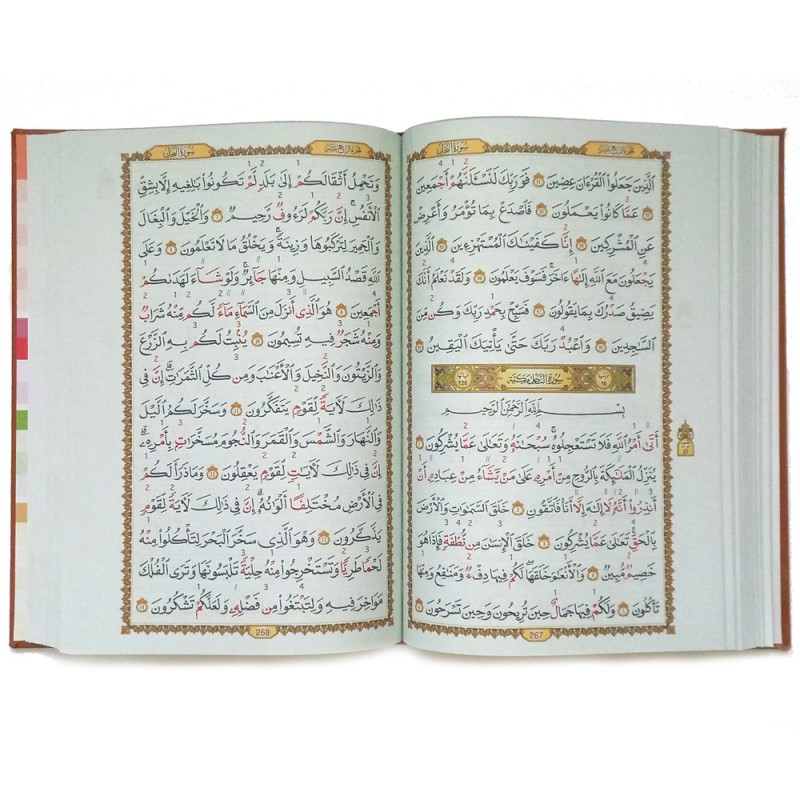 ٱلَّذِينَ جَعَلُوا۟ ٱلْقُرْءَانَ عِضِينَ ٩١ فَوَرَبِّكَ لَنَسْـَٔلَنَّهُمْ أَجْمَعِينَ
٩٢ عَمَّا كَانُوا۟ يَعْمَلُونَ ٩٣ فَٱصْدَعْ بِمَا تُؤْمَرُ وَأَعْرِضْ
عَنِ ٱلْمُشْرِكِينَ ٩٤ إِنَّا كَفَيْنَٰكَ ٱلْمُسْتَهْزِءِينَ ٩٥ ٱلَّذِينَ
يَجْعَلُونَ مَعَ ٱللَّهِ إِلَٰهًا ءَاخَرَ ۚ فَسَوْفَ يَعْلَمُونَ ٩٦ وَلَقَدْ نَعْلَمُ أَنَّكَ
يَضِيقُ صَدْرُكَ بِمَا يَقُولُونَ ٩٧ فَسَبِّحْ بِحَمْدِ رَبِّكَ وَكُن مِّنَ
ٱلسَّٰجِدِينَ ٩٨ وَٱعْبُدْ رَبَّكَ حَتَّىٰ يَأْتِيَكَ ٱلْيَقِينُ ٩٩
16 سُورَةُ النَّحْلِ مَكِّيَّة 128
بِسْمِ ٱللَّهِ ٱلرَّحْمَٰنِ ٱلرَّحِيمِ
أَتَىٰٓ أَمْرُ ٱللَّهِ فَلَا تَسْتَعْجِلُوهُ ۚ سُبْحَٰنَهُۥ وَتَعَٰلَىٰ عَمَّا يُشْرِكُونَ ١
يُنَزِّلُ ٱلْمَلَٰٓئِكَةَ بِٱلرُّوحِ مِنْ أَمْرِهِۦ عَلَىٰ مَن يَشَآءُ مِنْ عِبَادِهِۦٓ أَنْ
أَنذِرُوٓا۟ أَنَّهُۥ لَآ إِلَٰهَ إِلَّآ أَنَا۠ فَٱتَّقُونِ ٢ خَلَقَ ٱلسَّمَٰوَٰتِ وَٱلْأَرْضَ
بِٱلْحَقِّ ۚ تَعَٰلَىٰ عَمَّا يُشْرِكُونَ ٣ خَلَقَ ٱلْإِنسَٰنَ مِن نُّطْفَةٍ فَإِذَا هُوَ
خَصِيمٌ مُّبِينٌ ٤ وَٱلْأَنْعَٰمَ خَلَقَهَا ۗ لَكُمْ فِيهَا دِفْءٌ وَمَنَٰفِعُ وَمِنْهَا
تَأْكُلُونَ ٥ وَلَكُمْ فِيهَا جَمَالٌ حِينَ تُرِيحُونَ وَحِينَ تَسْرَحُونَ ٦
267
وَتَحْمِلُ أَثْقَالَكُمْ إِلَىٰ بَلَدٍ لَّمْ تَكُونُوا۟ بَٰلِغِيهِ إِلَّا بِشِقِّ
ٱلْأَنفُسِ ۚ إِنَّ رَبَّكُمْ لَرَءُوفٌ رَّحِيمٌ ٧ وَٱلْخَيْلَ وَٱلْبِغَالَ
وَٱلْحَمِيرَ لِتَرْكَبُوهَا وَزِينَةً ۚ وَيَخْلُقُ مَا لَا تَعْلَمُونَ ٨ وَعَلَى
ٱللَّهِ قَصْدُ ٱلسَّبِيلِ وَمِنْهَا جَآئِرٌ ۚ وَلَوْ شَآءَ لَهَدَىٰكُمْ
أَجْمَعِينَ ٩ هُوَ ٱلَّذِىٓ أَنزَلَ مِنَ ٱلسَّمَآءِ مَآءً ۖ لَّكُم مِّنْهُ شَرَابٌ
وَمِنْهُ شَجَرٌ فِيهِ تُسِيمُونَ ١٠ يُنۢبِتُ لَكُم بِهِ ٱلزَّرْعَ
وَٱلزَّيْتُونَ وَٱلنَّخِيلَ وَٱلْأَعْنَٰبَ وَمِن كُلِّ ٱلثَّمَرَٰتِ ۗ إِنَّ فِى
ذَٰلِكَ لَءَايَةً لِّقَوْمٍ يَتَفَكَّرُونَ ١١ وَسَخَّرَ لَكُمُ ٱلَّيْلَ
وَٱلنَّهَارَ وَٱلشَّمْسَ وَٱلْقَمَرَ ۖ وَٱلنُّجُومُ مُسَخَّرَٰتٌۢ بِأَمْرِهِۦٓ ۗ
إِنَّ فِى ذَٰلِكَ لَءَايَٰتٍ لِّقَوْمٍ يَعْقِلُونَ ١٢ وَمَا ذَرَأَ لَكُمْ
فِى ٱلْأَرْضِ مُخْتَلِفًا أَلْوَٰنُهُۥٓ ۗ إِنَّ فِى ذَٰلِكَ لَءَايَةً لِّقَوْمٍ
يَذَّكَّرُونَ ١٣ وَهُوَ ٱلَّذِى سَخَّرَ ٱلْبَحْرَ لِتَأْكُلُوا۟ مِنْهُ
لَحْمًا طَرِيًّا وَتَسْتَخْرِجُوا۟ مِنْهُ حِلْيَةً تَلْبَسُونَهَا وَتَرَى ٱلْفُلْكَ
مَوَاخِرَ فِيهِ وَلِتَبْتَغُوا۟ مِن فَضْلِهِۦ وَلَعَلَّكُمْ تَشْكُرُونَ ١٤
268